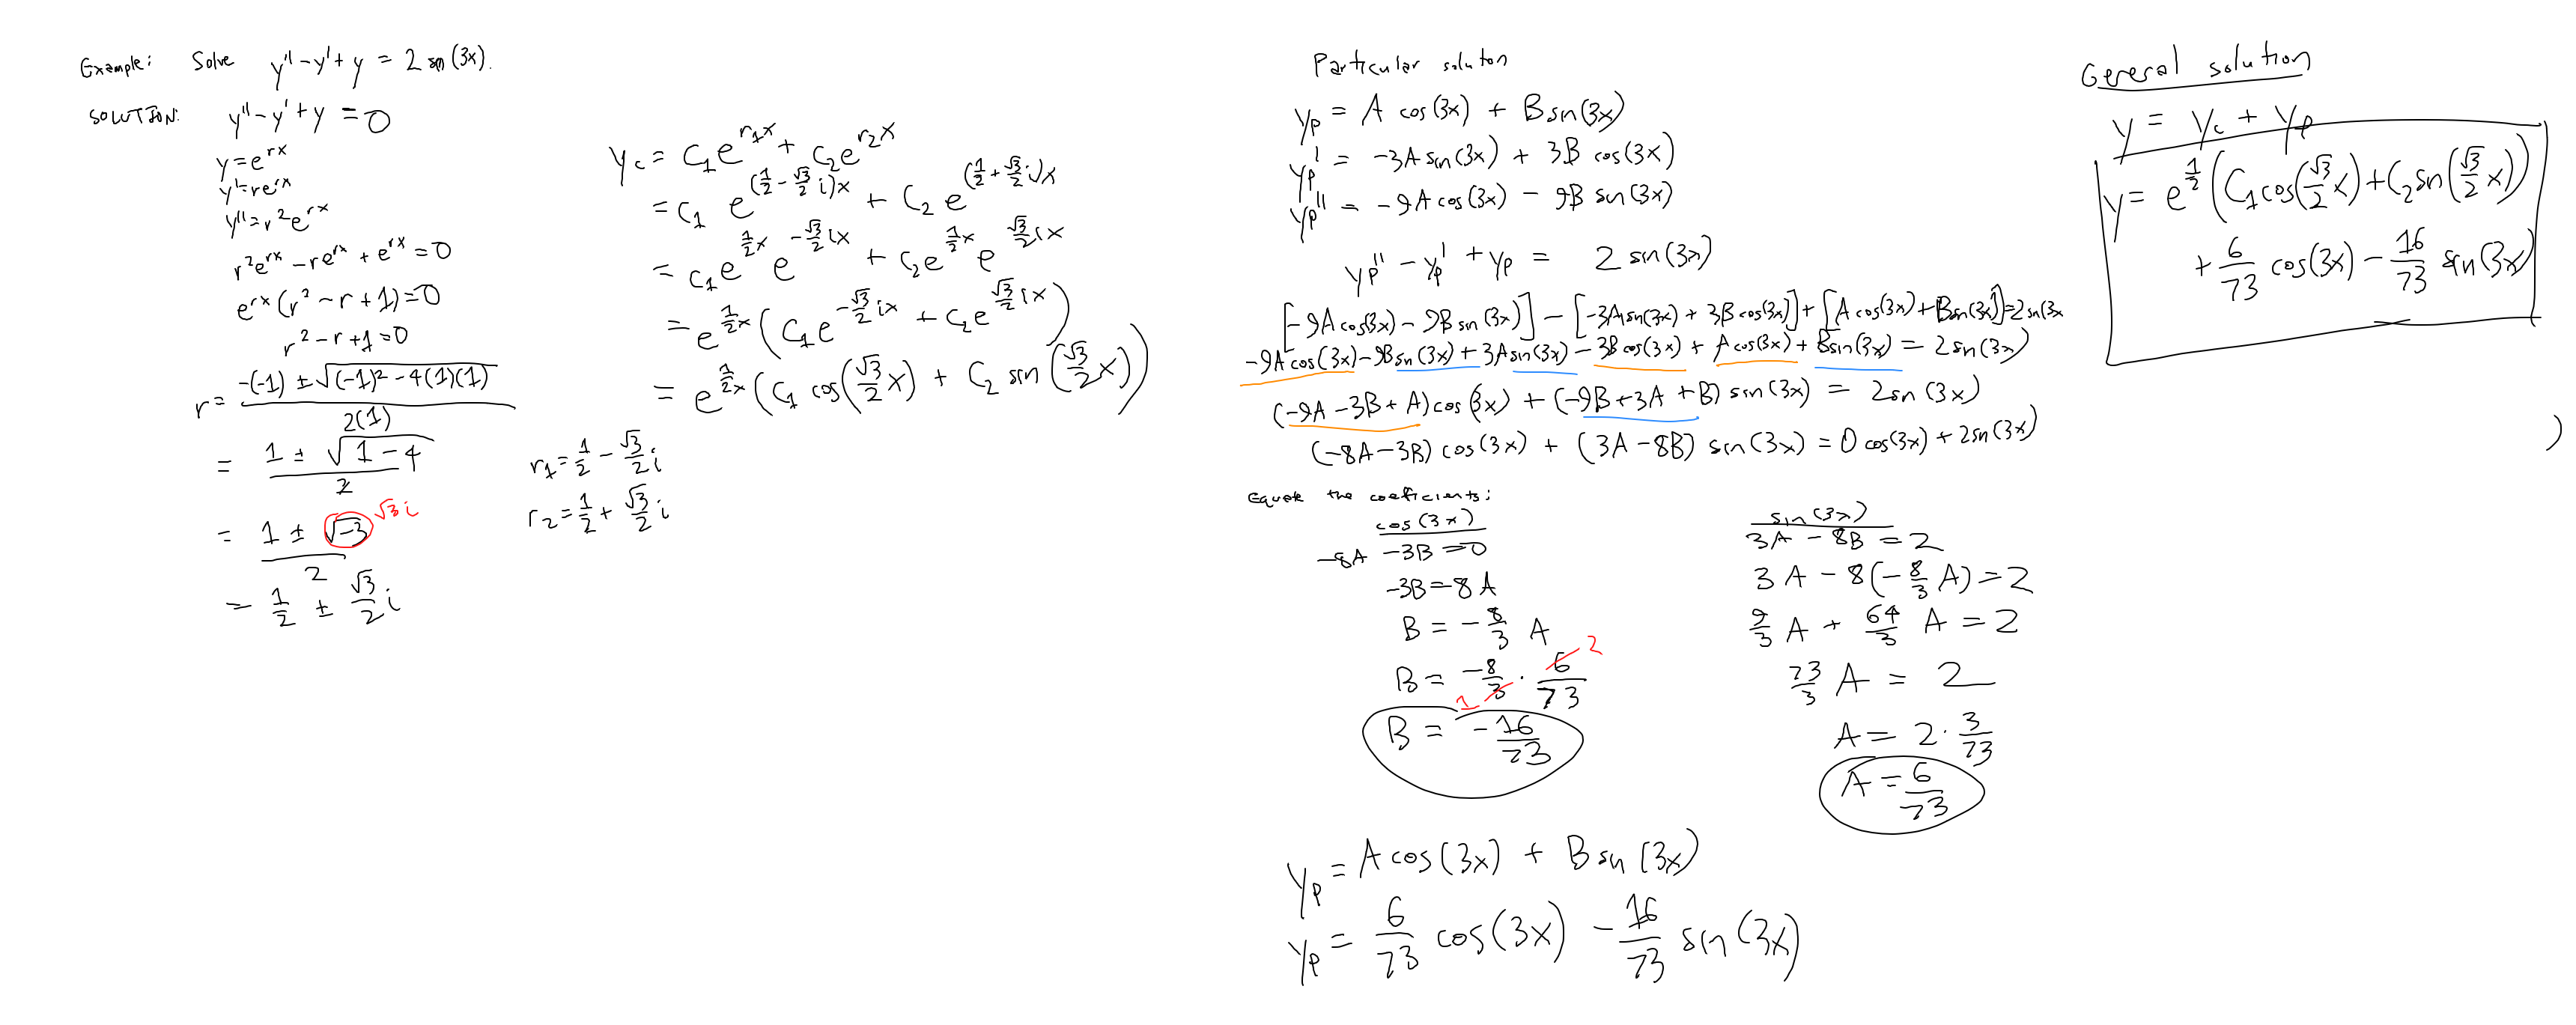 Example: Solve y'' - y' + y = 2 sin(3x).
SOLUTION: y'' - y' + y = 0
y = e^{rx}
y' = re^{rx}
y'' = r^2 e^{rx}
r^2 e^{rx} - re^{rx} + e^{rx} = 0
e^{rx}(r^2 - r + 1) = 0
r^2 - r + 1 = 0
r = \frac{-(-1) ± √((-1)^2 - 4(1)(1))}{2(1)}
= \frac{1 ± √(1 - 4)}{2}
= \frac{1 ± √-3}{2} √3 i
= \frac{1}{2} ± \frac{√3}{2} i
r_1 = \frac{1}{2} - \frac{√3}{2} i
r_2 = \frac{1}{2} + \frac{√3}{2} i
y_c = c_1 e^{r_1 x} + c_2 e^{r_2 x}
= c_1 e^{(\frac{1}{2} - \frac{√3}{2} i)x} + c_2 e^{(\frac{1}{2} + \frac{√3}{2} i)x}
= c_1 e^{\frac{1}{2}x} e^{-\frac{√3}{2} ix} + c_2 e^{\frac{1}{2}x} e^{\frac{√3}{2} ix}
= e^{\frac{1}{2}x} (c_1 e^{-\frac{√3}{2} ix} + c_2 e^{\frac{√3}{2} ix})
= e^{\frac{1}{2}x} (c_1 cos(\frac{√3}{2} x) + c_2 sin(\frac{√3}{2} x))
Particular soluton
y_p = A cos(3x) + B sin(3x)
y_p' = -3A sin(3x) + 3B cos(3x)
y_p'' = -9A cos(3x) - 9B sin(3x)
y_p'' - y_p' + y_p = 2 sin(3x)
[-9A cos(3x) - 9B sin(3x)] - [-3A sin(3x) + 3B cos(3x)] + [A cos(3x) + B sin(3x)] = 2 sin(3x
-9A cos(3x) - 9B sin(3x) + 3A sin(3x) - 3B cos(3x) + A cos(3x) + B sin(3x) = 2 sin(3x)
(-9A - 3B + A) cos(3x) + (-9B + 3A + B) sin(3x) = 2 sin(3x)
(-8A - 3B) cos(3x) + (3A - 8B) sin(3x) = 0 cos(3x) + 2 sin(3x)
Equate the coefficients:
cos(3x)
-8A - 3B = 0
-3B = 8A
B = -\frac{8}{3} A
B = -\frac{8}{3} · \frac{6}{73} 1 2
B = -\frac{16}{73}
sin(3x)
3A - 8B = 2
3A - 8(-\frac{8}{3} A) = 2
\frac{9}{3} A + \frac{64}{3} A = 2
\frac{73}{3} A = 2
A = 2 · \frac{3}{73}
A = \frac{6}{73}
y_p = A cos(3x) + B sin(3x)
y_p = \frac{6}{73} cos(3x) - \frac{16}{73} sin(3x)
General solution
y = y_c + y_p
y = e^{\frac{1}{2}} (C_1 cos(\frac{√3}{2} x) + C_2 sin(\frac{√3}{2} x))
+ \frac{6}{73} cos(3x) - \frac{16}{73} sin(3x)
)